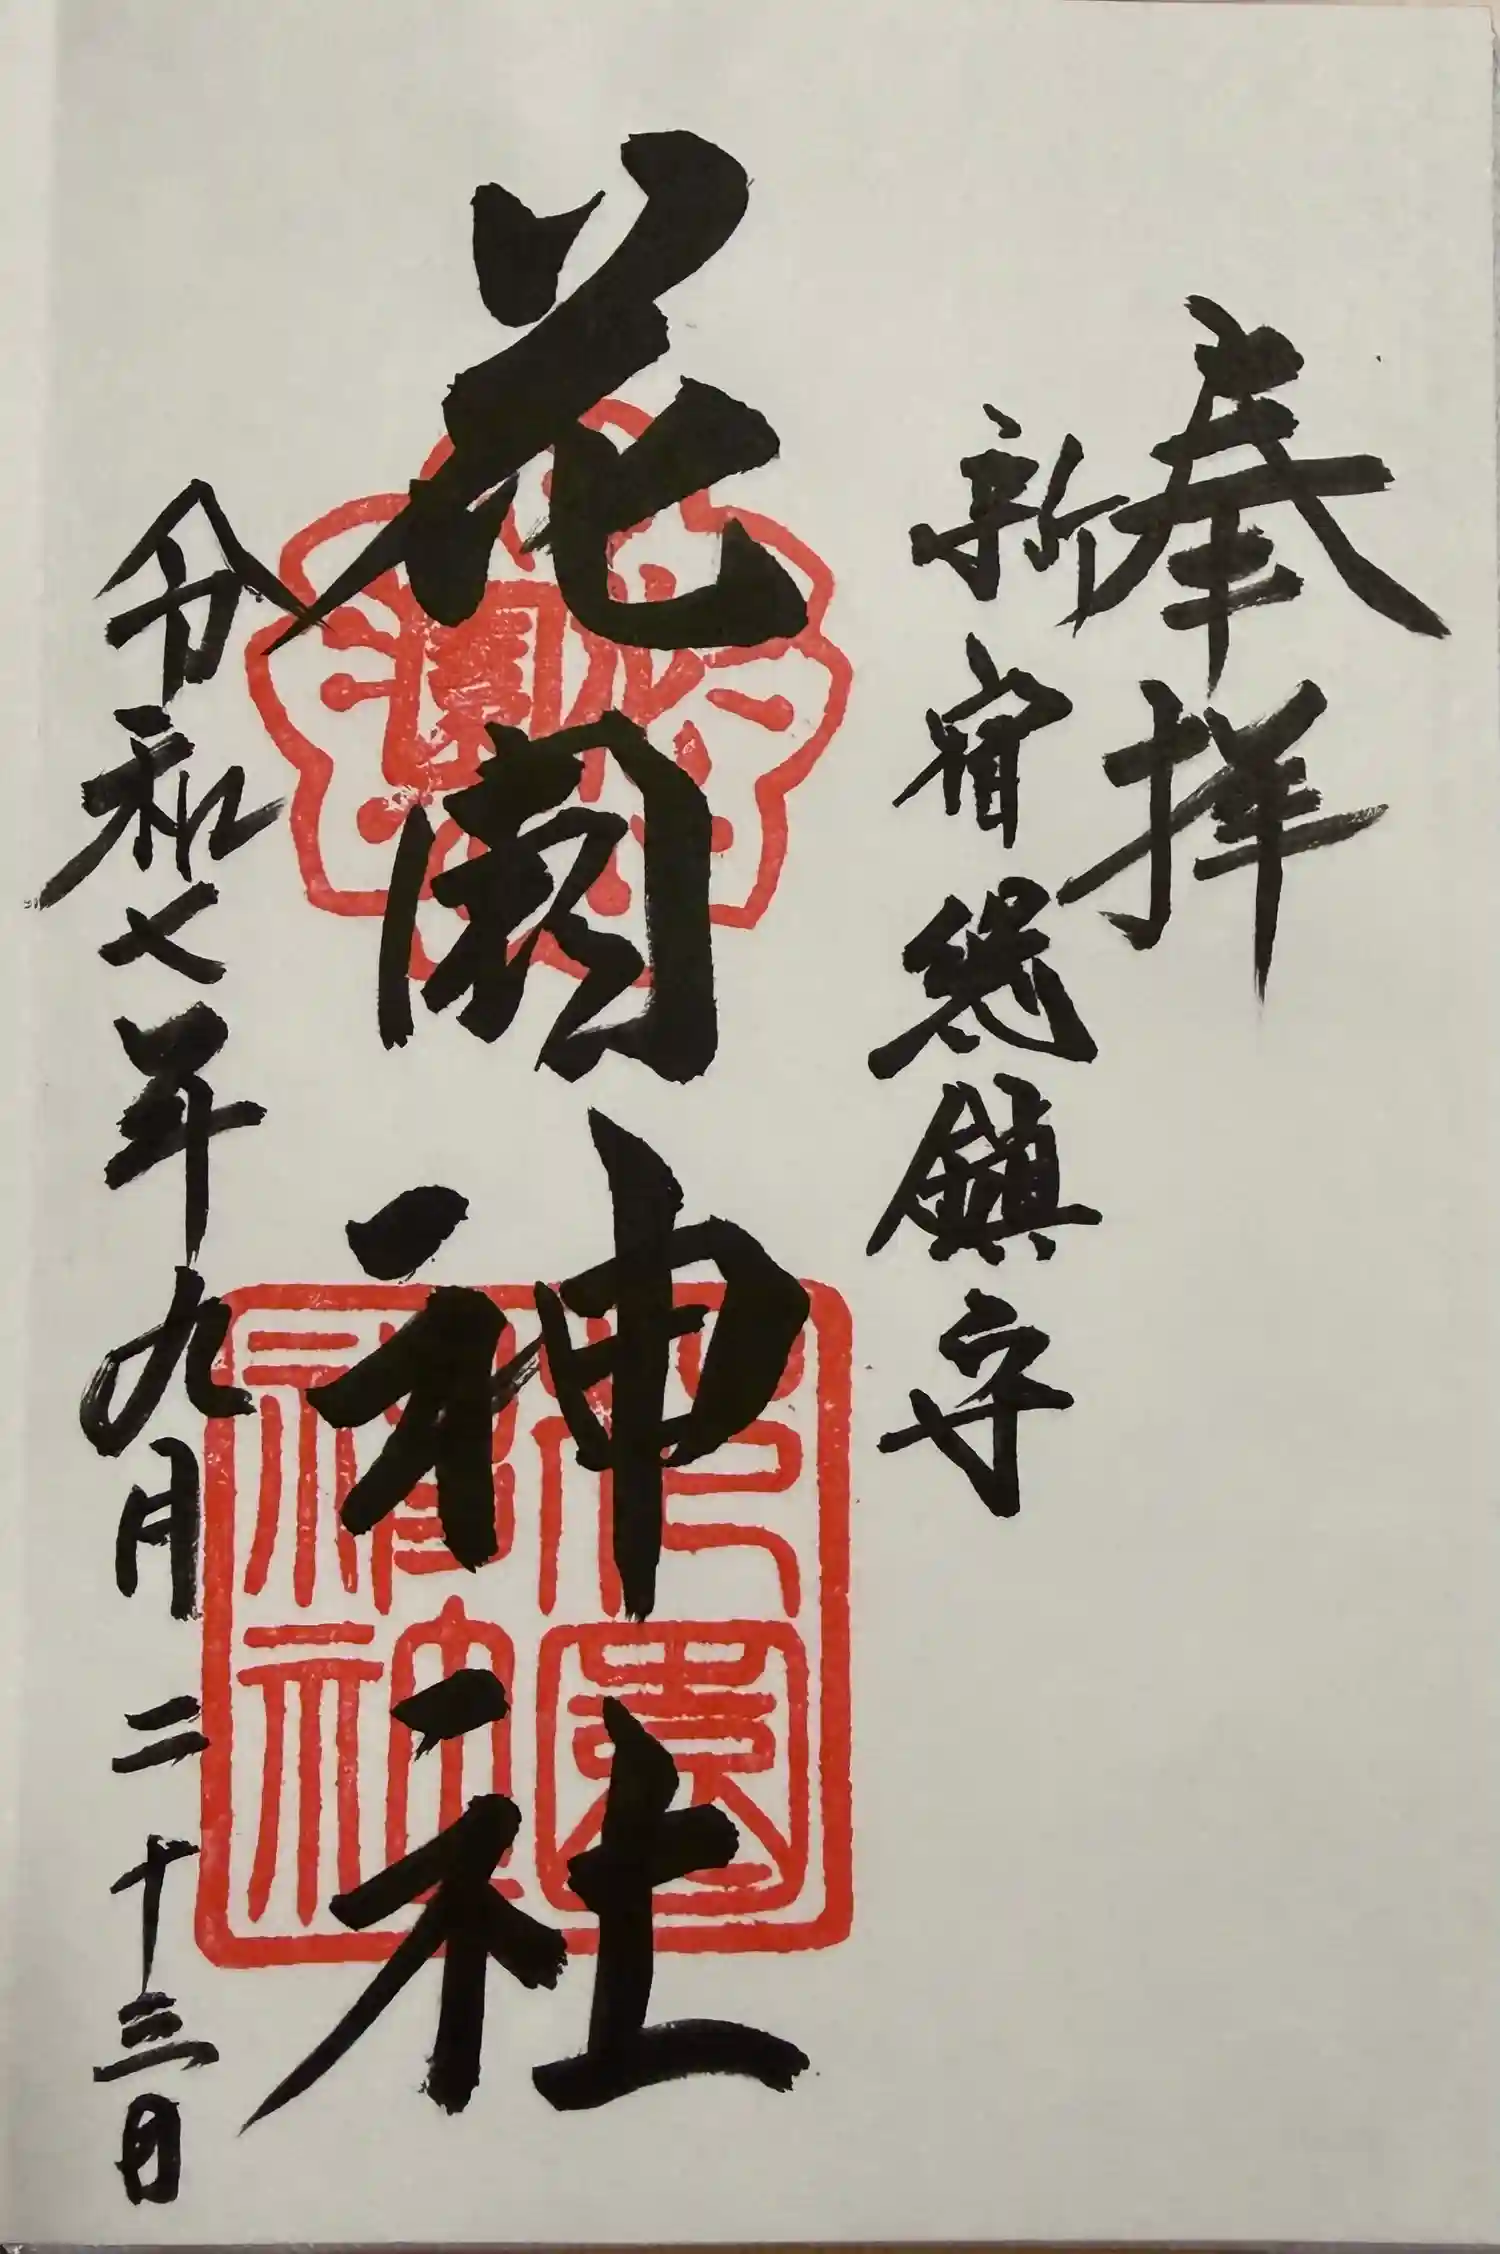 奉拝
新宿総鎮守
花園神社
令和七年九月二十三日
花園
花園
神社